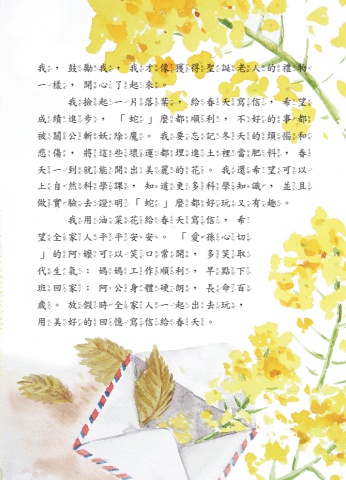 我，鼓勵我，我才像獲得聖誕老人的禮物
一樣，開心了起來。
我撿起一片落葉，給春天寫信，希望
成績進步，「蛇」麼都順利，不好的事都
被關公斬妖除魔。我要忘記冬天的煩惱和
悲傷，將這些壞運都埋進土裡當肥料，春
天一到就能開出美麗的花。我還希望可以
上自然科學課，知道更多科學知識，並且
做實驗去證明「蛇」麼都好玩又有趣。
我用油菜花給春天寫信，希
望全家人平平安安。「愛孫心切
」的阿嬤可以笑口常開，多笑取
代生氣；媽媽工作順利，早點下
班回家；阿公身體硬朗，長命百
歲。放假時全家人一起出去玩，
用美好的回憶寫信給春天。